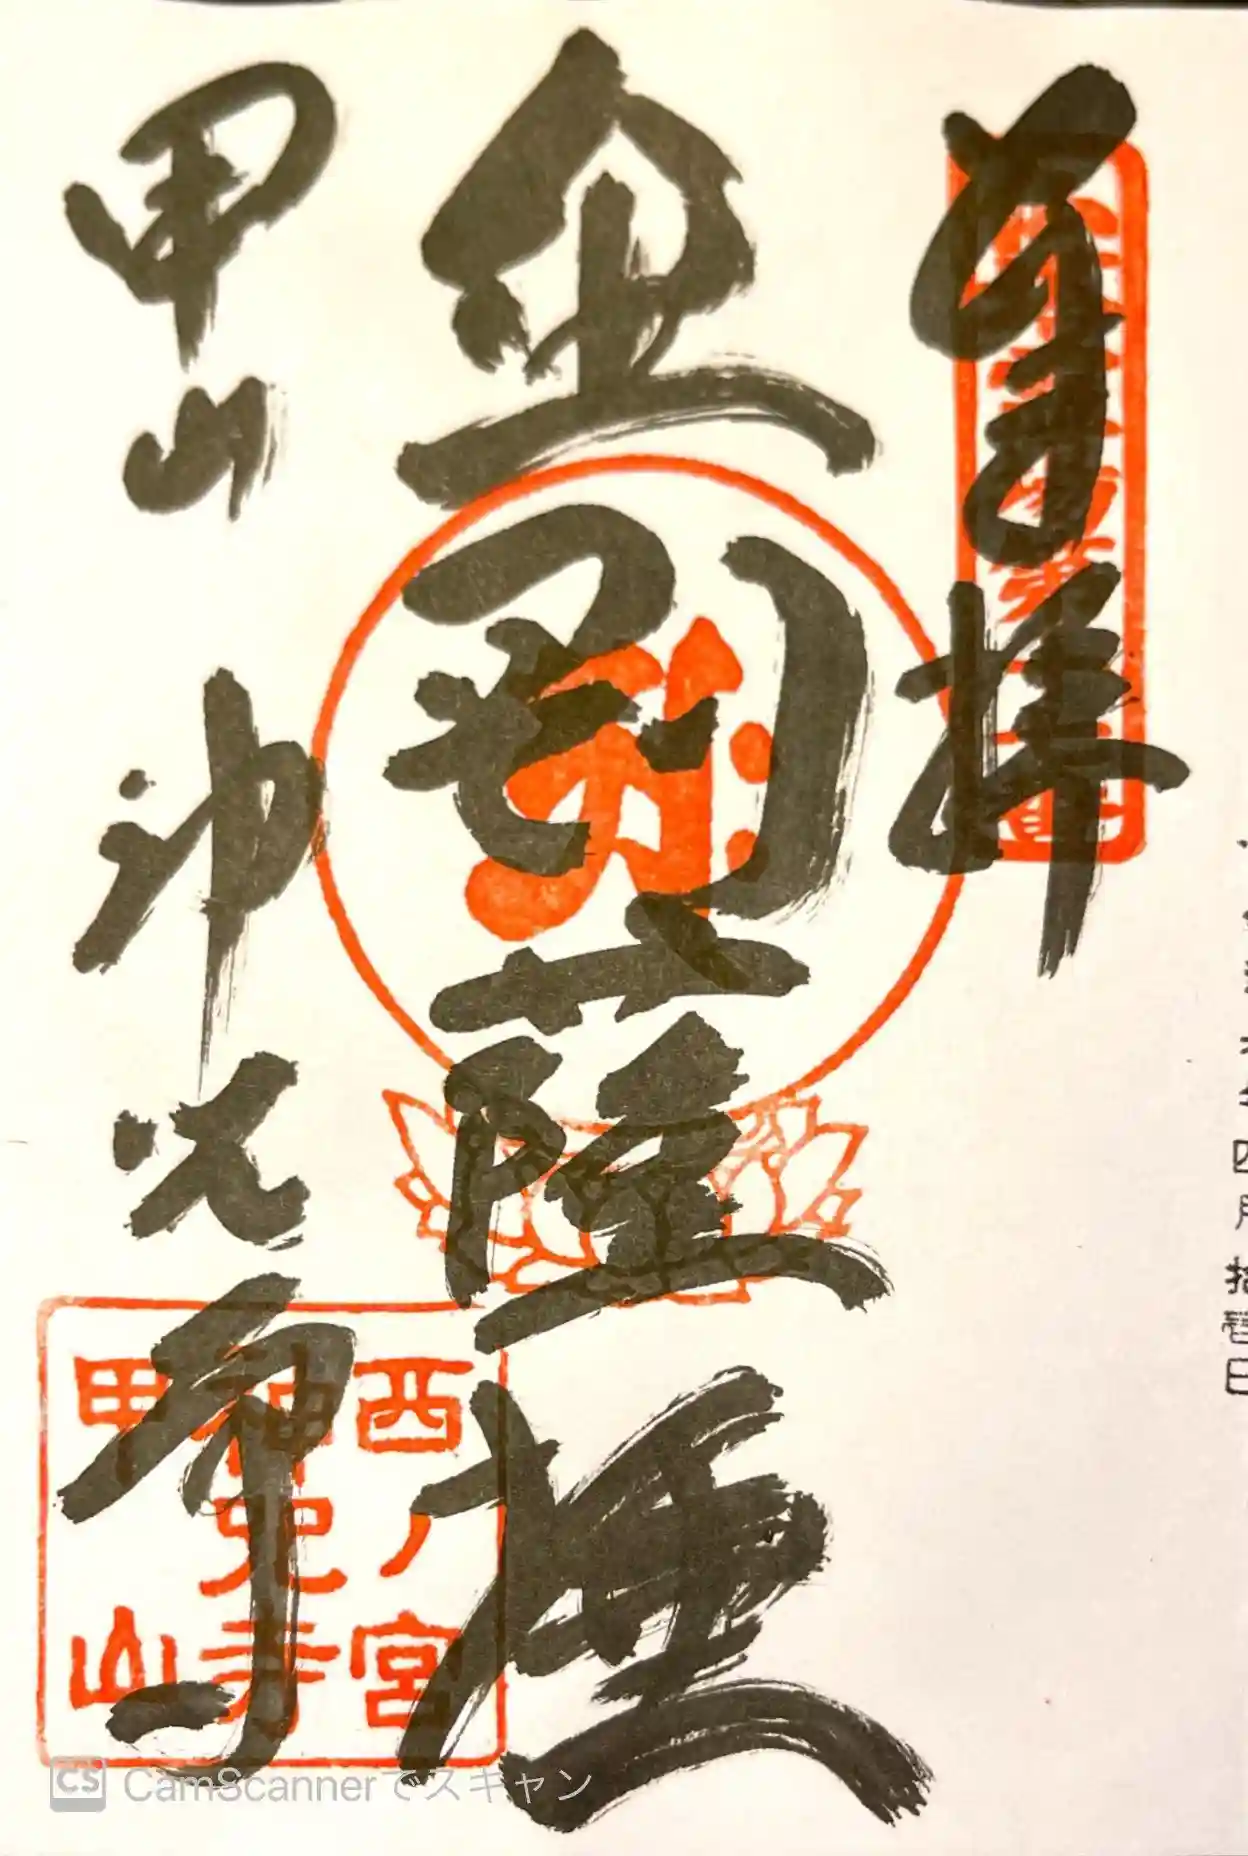 奉拝
金剛薩埵
甲山 神呪寺
西ノ宮
神呪寺
甲山
四月拾壱日
CS CamScannerでスキャン